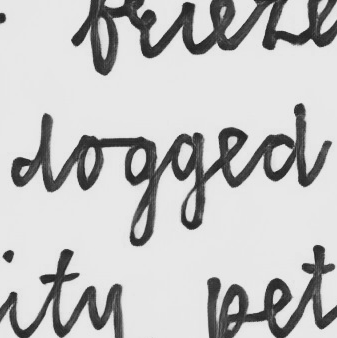 frieze
dogged
ity pet